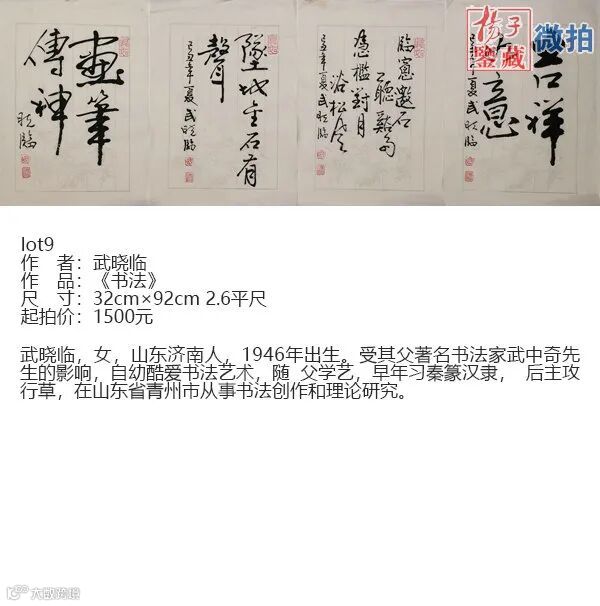 畫筆
傳神
晓临
墜地金石有
聲
己丑年夏武晓临
憑檻對月
己丑年夏武晓临
鉴藏
微拍
lot9
作　者：武晓临
作　品：《书法》
尺　寸：32cm×92cm 2.6平尺
起拍价：1500元
武晓临，女，山东济南人，1946年出生。受其父著名书法家武中奇先
生的影响，自幼酷爱书法艺术，随 父学艺，早年习秦篆汉隶， 后主攻
行草，在山东省青州市从事书法创作和理论研究。